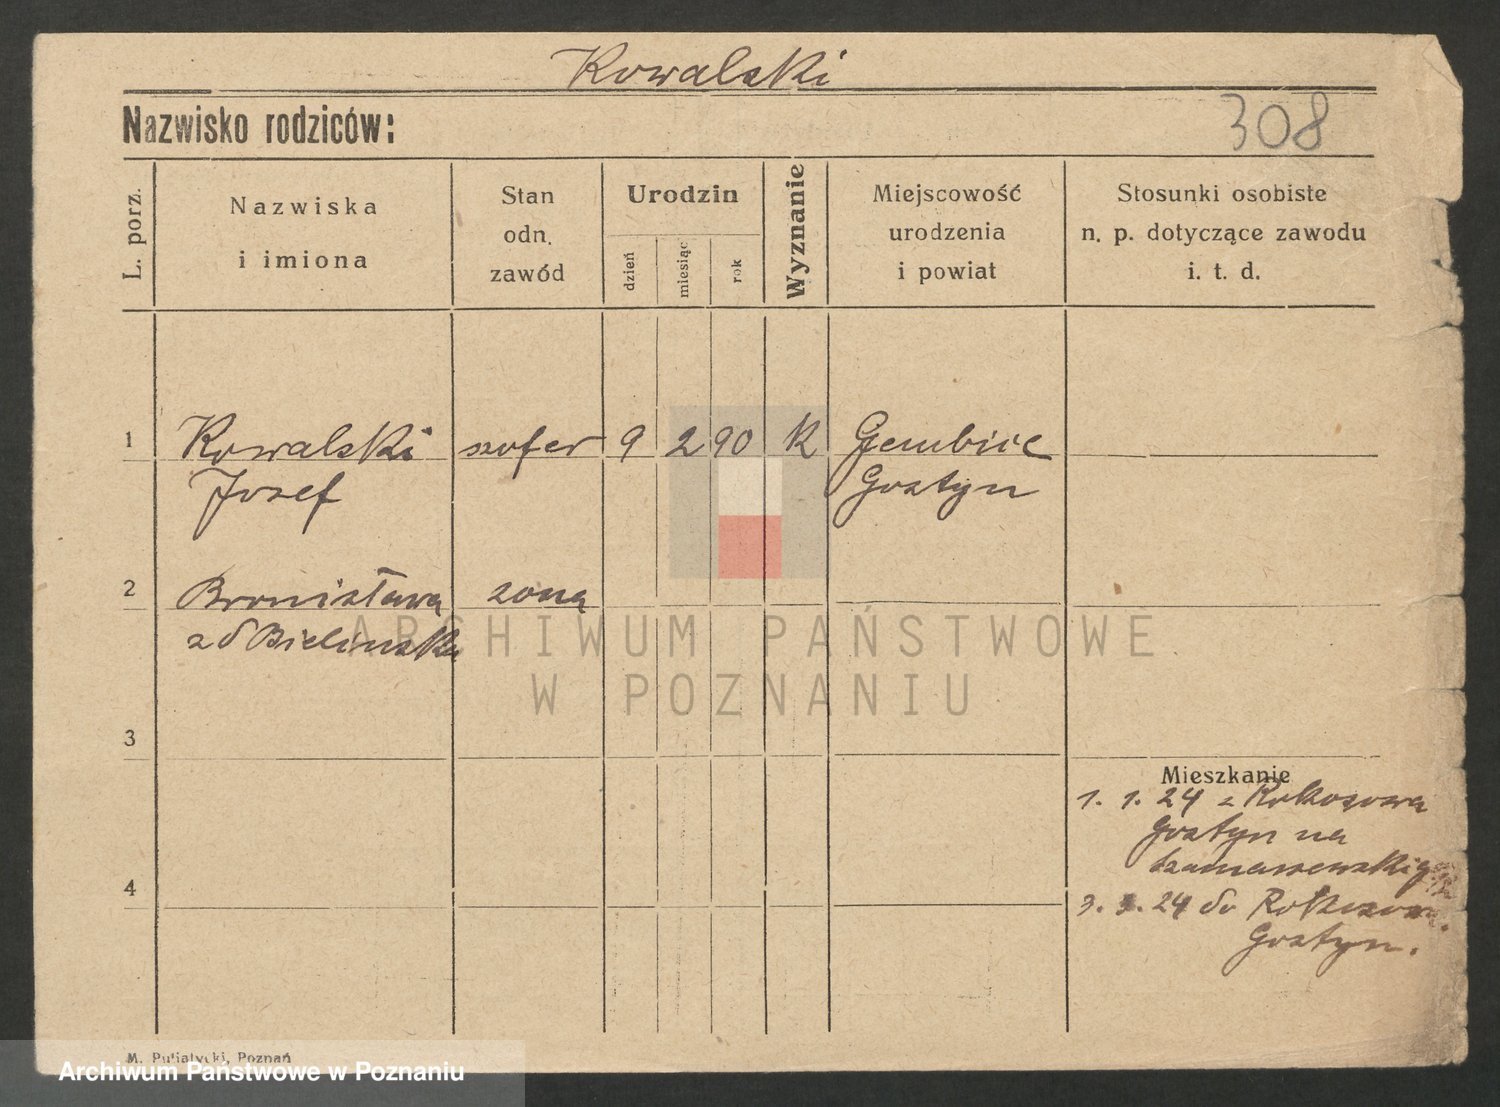 Kowalski
Nazwisko rodziców:
308
L. porz.
Nazwiska
i imiona
Stan
odn.
zawód
Urodzin
dzień
miesiąc
rok
Wyznanie
Miejscowość
urodzenia
i powiat
Stosunki osobiste
n. p. dotyczące zawodu
i. t. d.
1 Kowalski szofer 9 2 90 k Gembice
Josef Gostyn
2 Bronisława żona
zd Bielinska
ARCHIWUM PAŃSTWOWE
W POZNANIU
3
Mieszkanie
1. 1. 24 z Rokosowa
Gostyn na
4
3. 24 do
Gostyn.
M. Putiatycki, Poznań
Archiwum Państwowe w Poznaniu